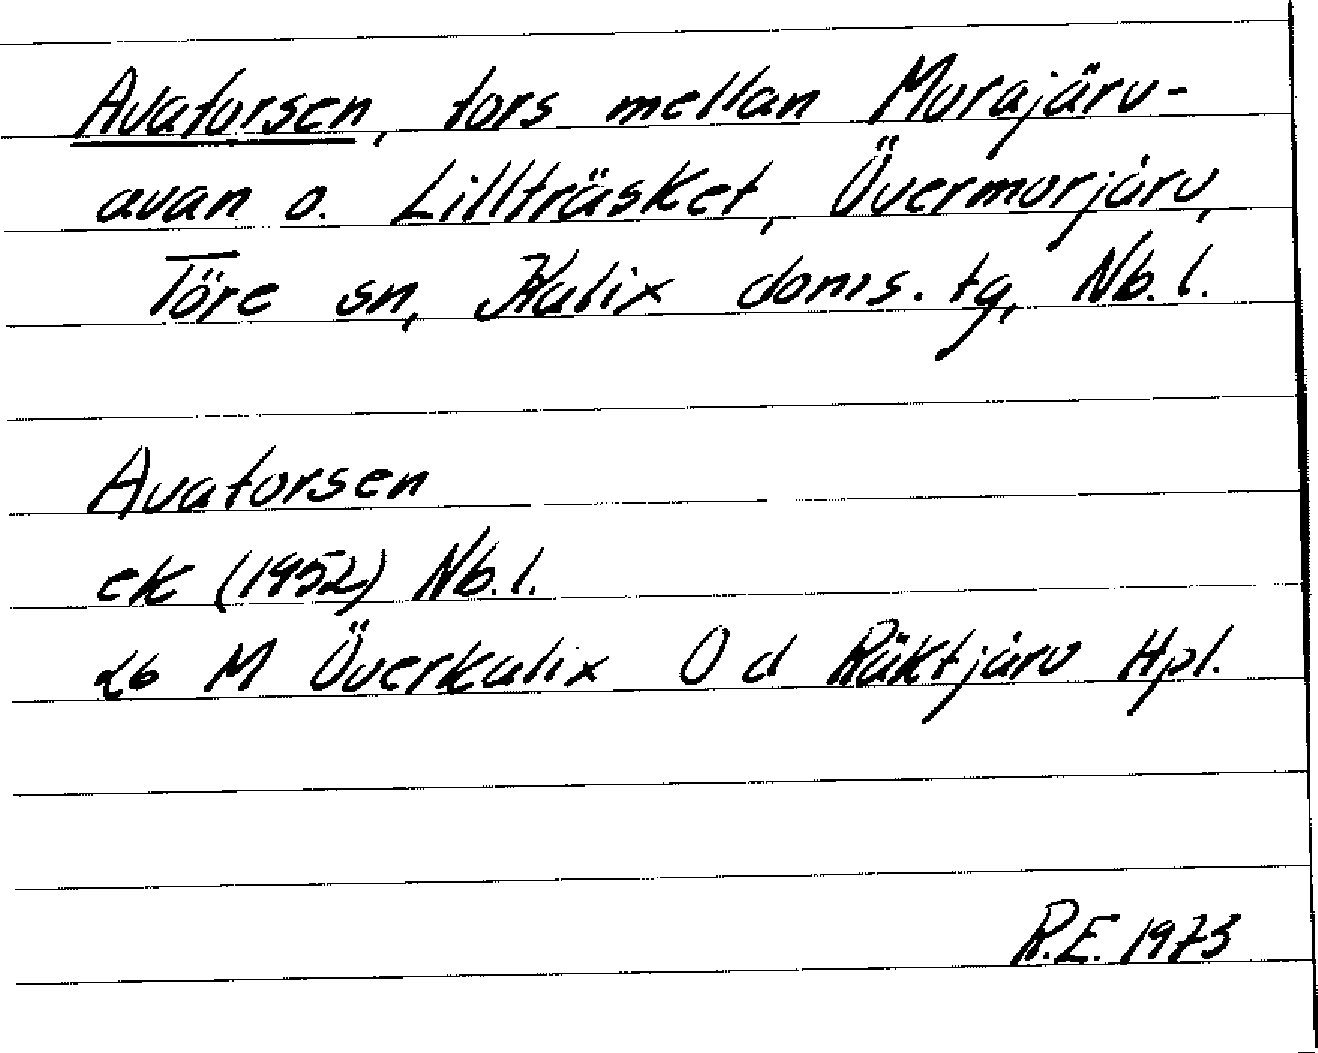 Avaforsen, fors mellan Morajärv-
avan o. Lillträsket, Övermorjärv,
Töre sn, Kalix doms. tg, Nb. l.
Avaforsen
ek (1952) Nb. l.
26 M Överkalix 0 d Räktjärv Hpl.
R.E. 1973